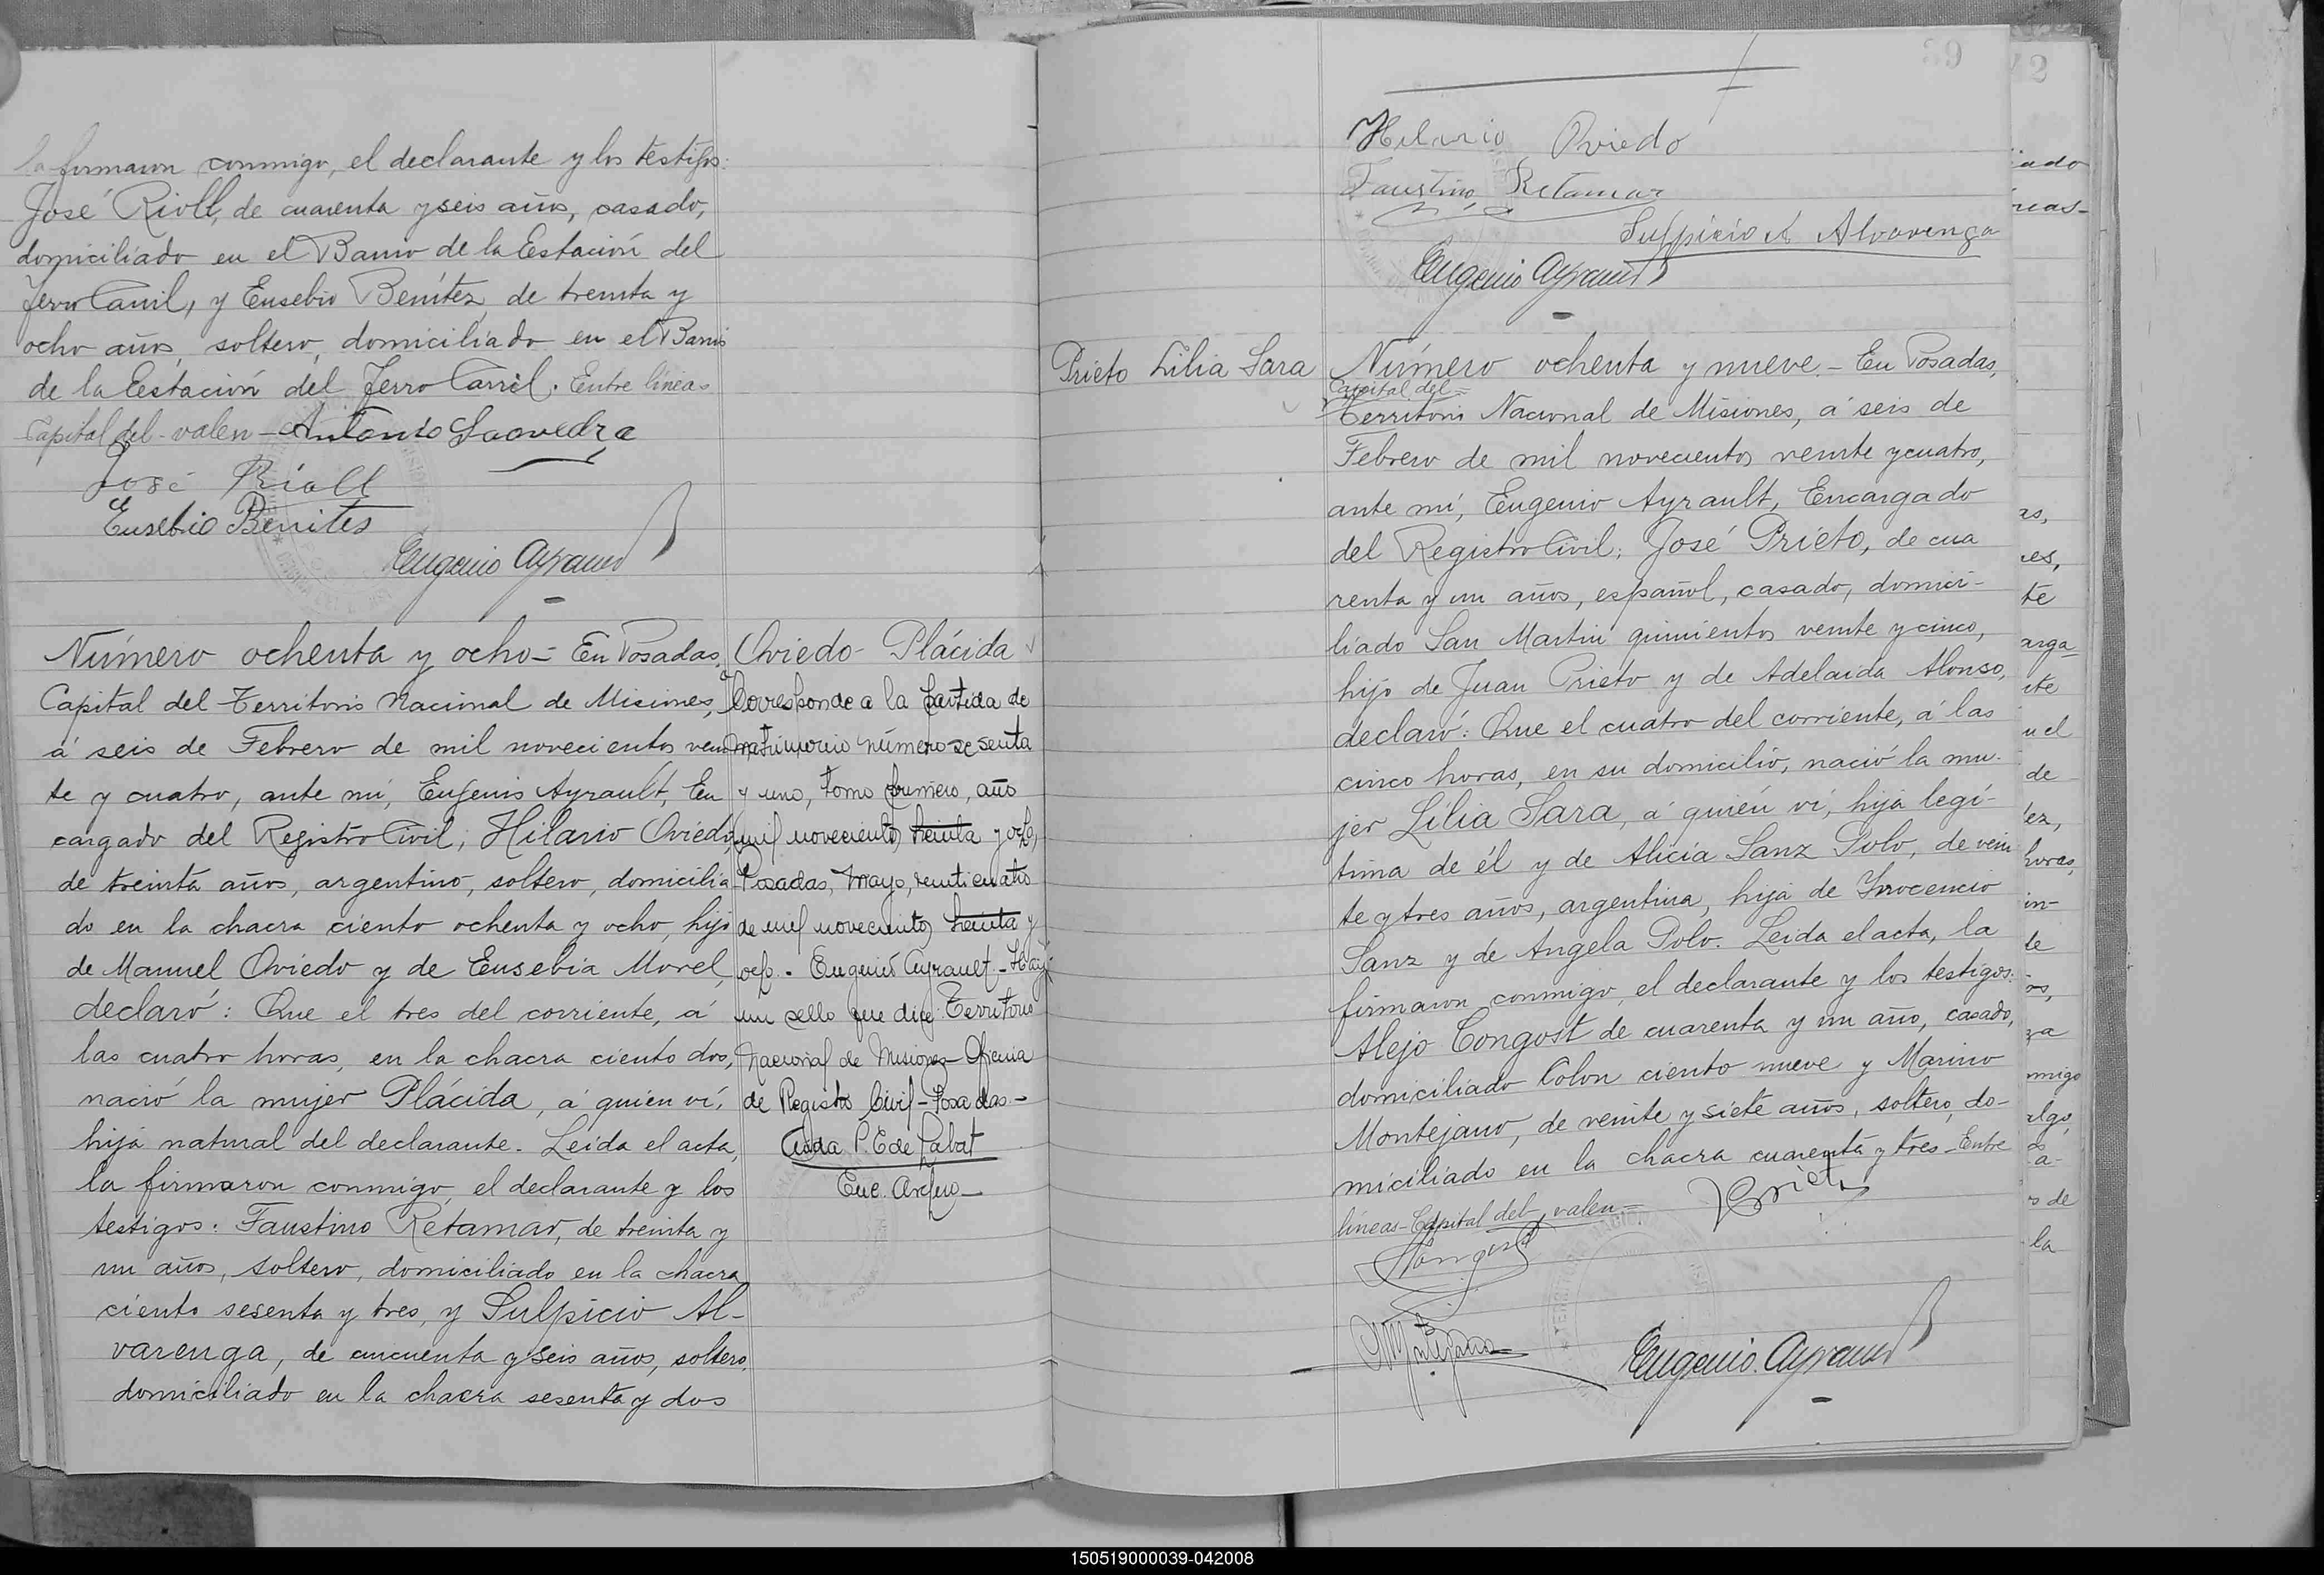 la firmaron conmigo, el declarante y los testigos:
José Rioll, de cuarenta y seis años, casado,
domiciliado en el Barrio de la Estación del
Ferro Carril, y Eusebio Benítez, de treinta y
ocho años, soltero, domiciliado en el Barrio
de la Estación del Ferro Carril. Entre líneas
Capital del - valen - Antonio Saavedra
José Rioll
Eusebio Benites
Eugenio Ayrault
Número ochenta y ocho - En Posadas,
Capital del Territorio Nacional de Misiones,
á seis de Febrero de mil novecientos vein
te y cuatro, ante mí, Eugenio Ayrault, En
cargado del Registro Civil; Hilario Oviedo,
de treinta años, argentino, soltero, domicilia
do en la chacra ciento ochenta y ocho, hijo
de Manuel Oviedo y de Eusebia Morel,
declaró: Que el tres del corriente, á
las cuatro horas, en la chacra ciento dos,
nació la mujer Plácida, á quien ví,
hija natural del declarante. Leída el acta,
la firmaron conmigo, el declarante y los
testigos: Faustino Retamar, de treinta y
un años, soltero, domiciliado en la chacra
ciento sesenta y tres, y Sulpicio Al-
varenga, de cincuenta y seis años, soltero,
domiciliado en la chacra sesenta y dos
Oviedo - Plácida
Corresponde a la partida de
matrimonio número sesenta
y uno, tomo primero, año
mil novecientos treinta y ocho,
Posadas, Mayo, veinticuatro
de mil novecientos treinta y
ocho. - Eugenio Ayrault - Hay
un sello que dice: Territorio
Nacional de Misiones - Oficina
de Registro Civil - Posadas -
Aida P. E de Labat
Enc. Archivo -
39
Hilario Oviedo
Faustino Retamar
Sulpicio A Alvarenga
Eugenio Ayrault
Prieto Lilia Sara
Número ochenta y nueve. - En Posadas,
Capital del =
Territorio Nacional de Misiones, á seis de
Febrero de mil novecientos veinte y cuatro,
ante mí, Eugenio Ayrault, Encargado
del Registro Civil; José Prieto, de cua
renta y un años, español, casado, domici-
liado San Martín quinientos veinte y cinco,
hijo de Juan Prieto y de Adelaida Alonso,
declaró: Que el cuatro del corriente, á las
cinco horas, en su domicilio, nació la mu-
jer Lilia Sara, á quién ví, hija legí-
tima de él y de Alicia Sanz Polo, de vein
te y tres años, argentina, hija de Inocencio
Sanz y de Angela Polo. Leída el acta, la
firmaron conmigo, el declarante y los testigos:
Alejo Congost de cuarenta y un año, casado,
domiciliado Colon ciento nueve y Marino
Montejano, de veinte y siete años, soltero, do-
miciliado en la chacra cuarenta y tres - Entre
líneas - Capital del, valen = JPrieto
Congost
MMontejano
Eugenio Ayrault
150519000039-042008